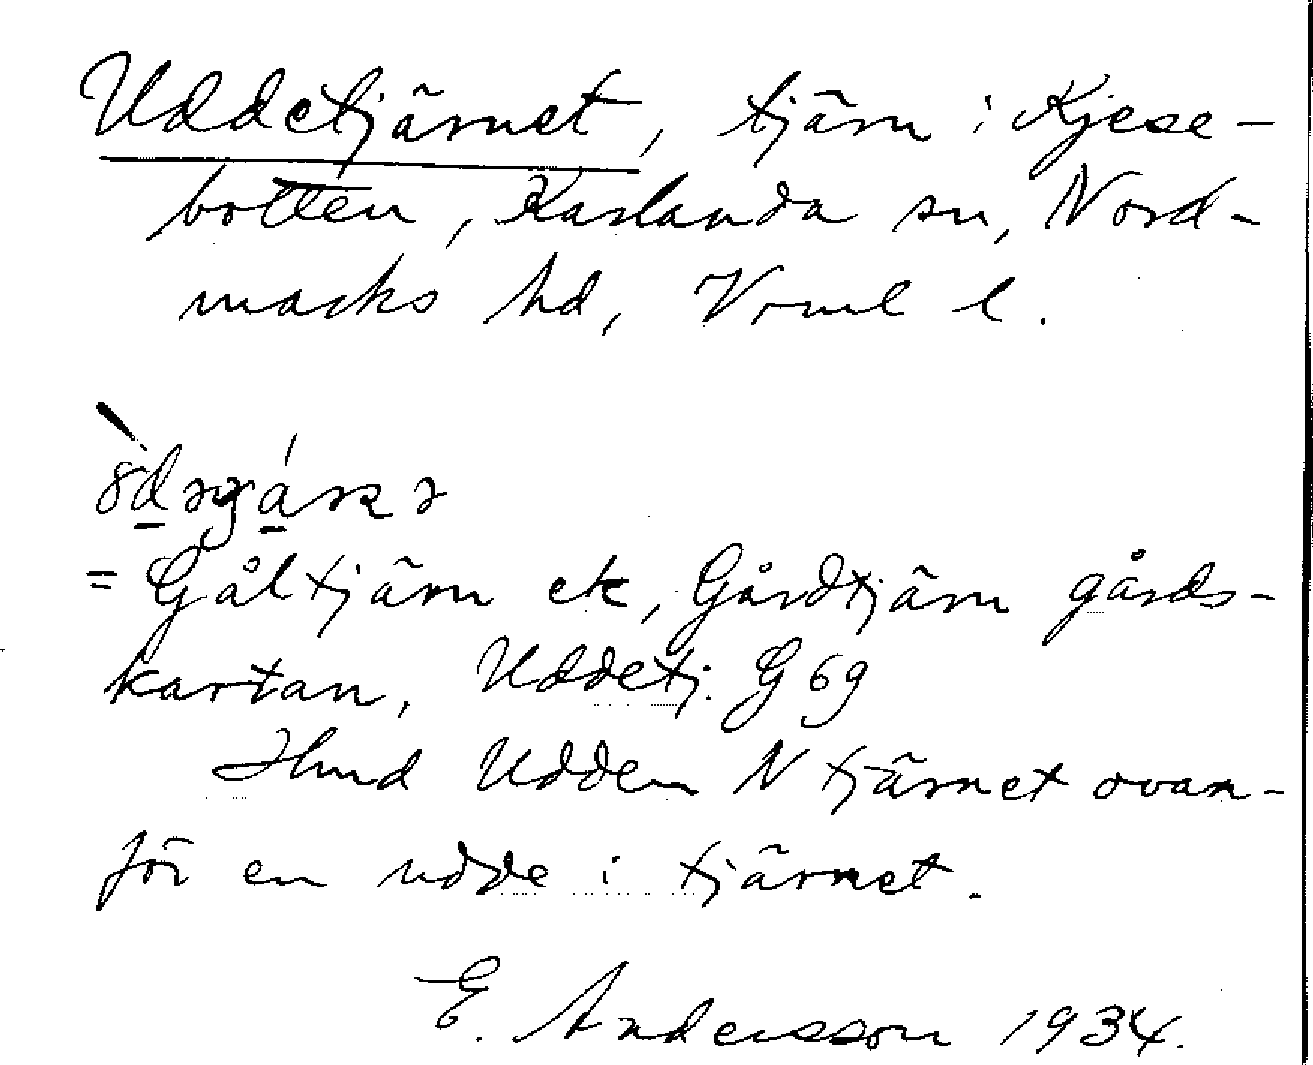 Uddetjärnet, tjärn i Kjese-
botten, Karlanda sn, Nord-
marks hd, Vrml l.
= Gåltjärn ek, Gårdtjärn gårds-
kartan, Uddetj. G 69
Hmd Udden N tjärnet ovan-
för en udde i tjärnet.
E. Andersson 1934.